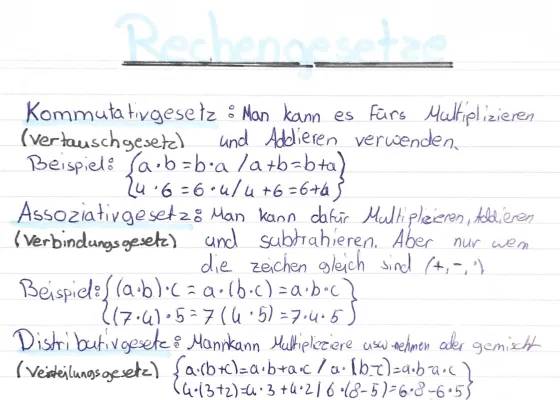 Rechengesetze
Kommutativgesetz : Man kann es Fürs Multiplizieren
(Vertauschgesetz) und Addieren verwenden.
Beispiel: {a·b=b·a / a+b=b+a}
{4·6=6·4 / 4+6=6+4}
Assoziativgesetz: Man kann dafür Multiplizieren, Addieren
(Verbindungsgesetz) und subtrahieren. Aber nur wenn
die zeichen gleich sind (+,-,·)
Beispiel: {(a·b)·c = a·(b·c) = a·b·c}
{(7·4)·5 = 7(4·5) = 7·4·5}
Distributivgesetz: Mann kann Multipliziere usw. nehmen oder gemischt
(Verteilungsgesetz) {a·(b+c)=a·b+a·c / a·(b-c)=a·b-a·c}
{4·(3+2)=4·3+4·2 / 6·(8-5)=6·8-6·5}